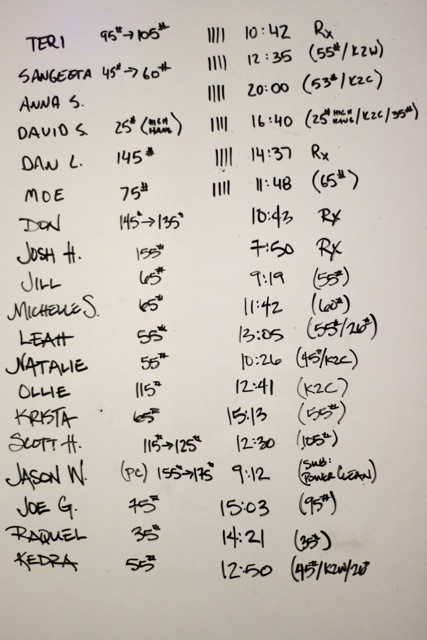 TERI 95# → 105# |||| 10:42 Rx
SANGEETA 45# → 60# |||| 12:35 (55#/K2W)
ANNA S. |||| 20:00 (53#/K2C)
DAVID S. 25# (HIGH HANG) |||| 16:40 (25# HIGH HANG/K2C/35#)
DAN L. 145# |||| 14:37 Rx
MOE 75# |||| 11:48 (65#)
DON 145# → 135# 10:43 RX
JOSH H. 155# 7:50 RX
JILL 65# 9:19 (55#)
MICHELLE S. 65# 11:42 (60#)
LEAH 55# 13:05 (55#/26#)
NATALIE 55# 10:26 (45#/K2C)
OLLIE 115# 12:41 (K2C)
KRISTA 65# 15:13 (55#)
SCOTT H. 115# → 125# 12:30 (105#)
JASON W. (PC) 155# → 175# 9:12 (SUB: POWER CLEAN)
JOE G. 75# 15:03 (95#)
RAQUEL 35# 14:21 (35#)
KEDRA 55# 12:50 (45#/K2W/26#